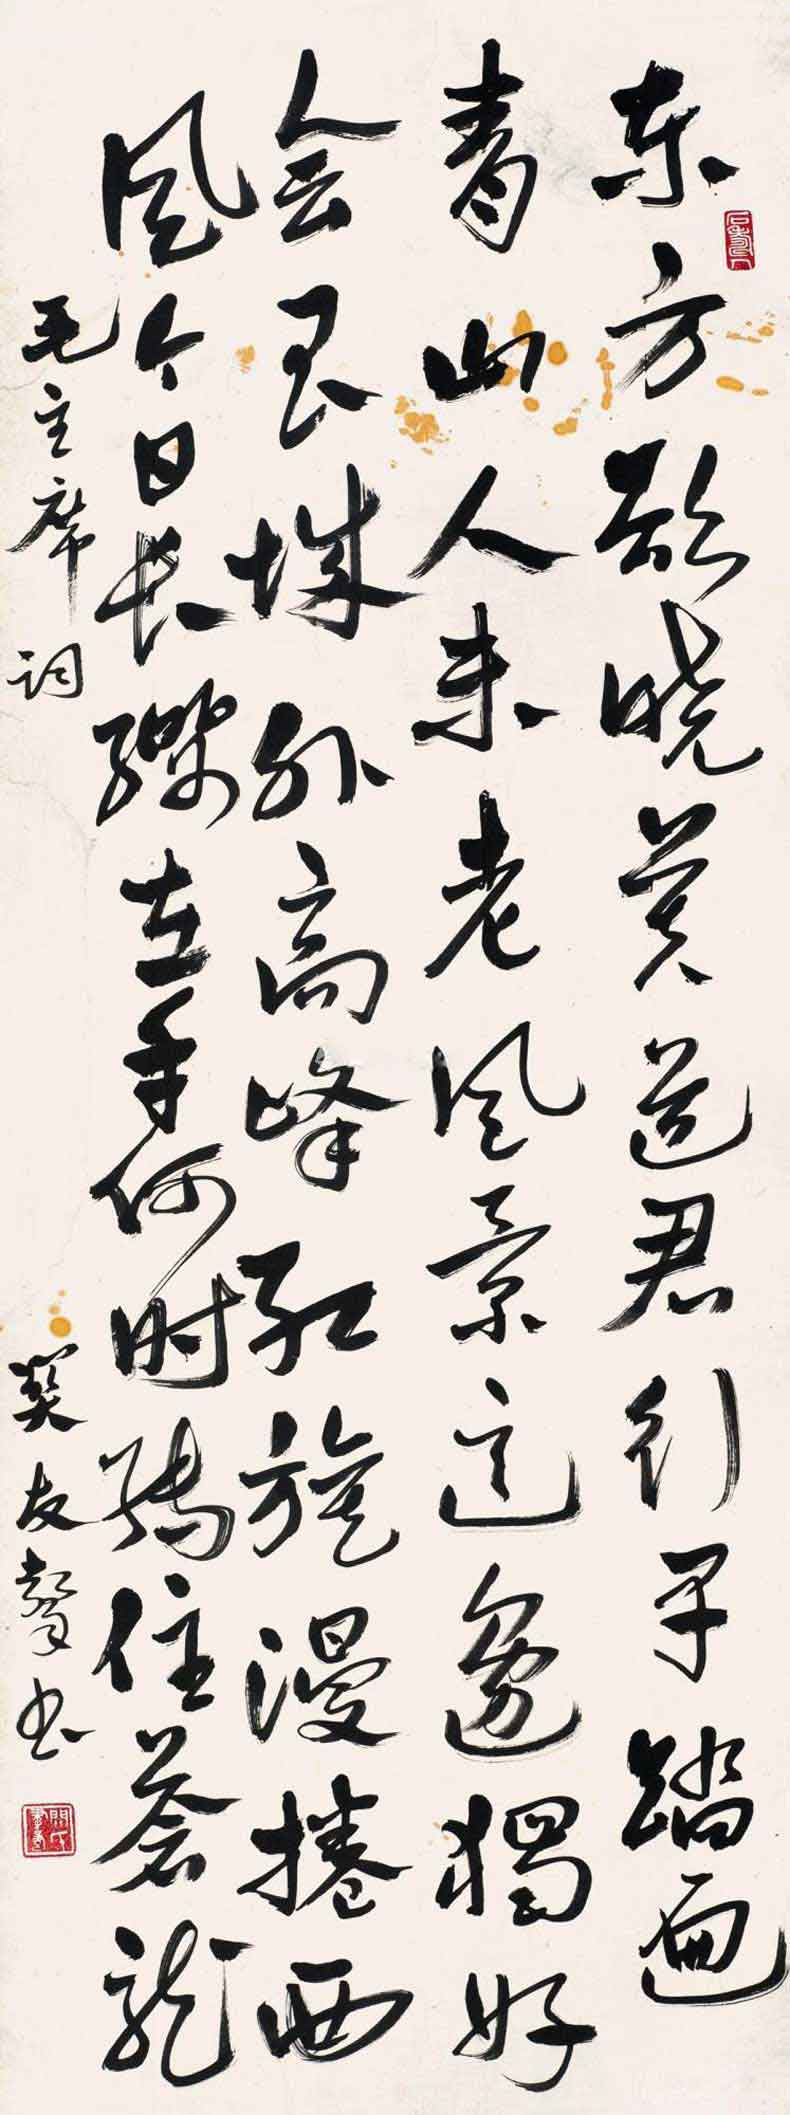 东方欲晓莫道君行早踏遍
青山人未老风景这邊獨好
会昌城外高峰红旗漫捲西
风今日长缨在手何时缚住蒼龙
毛主席词
关友聲书